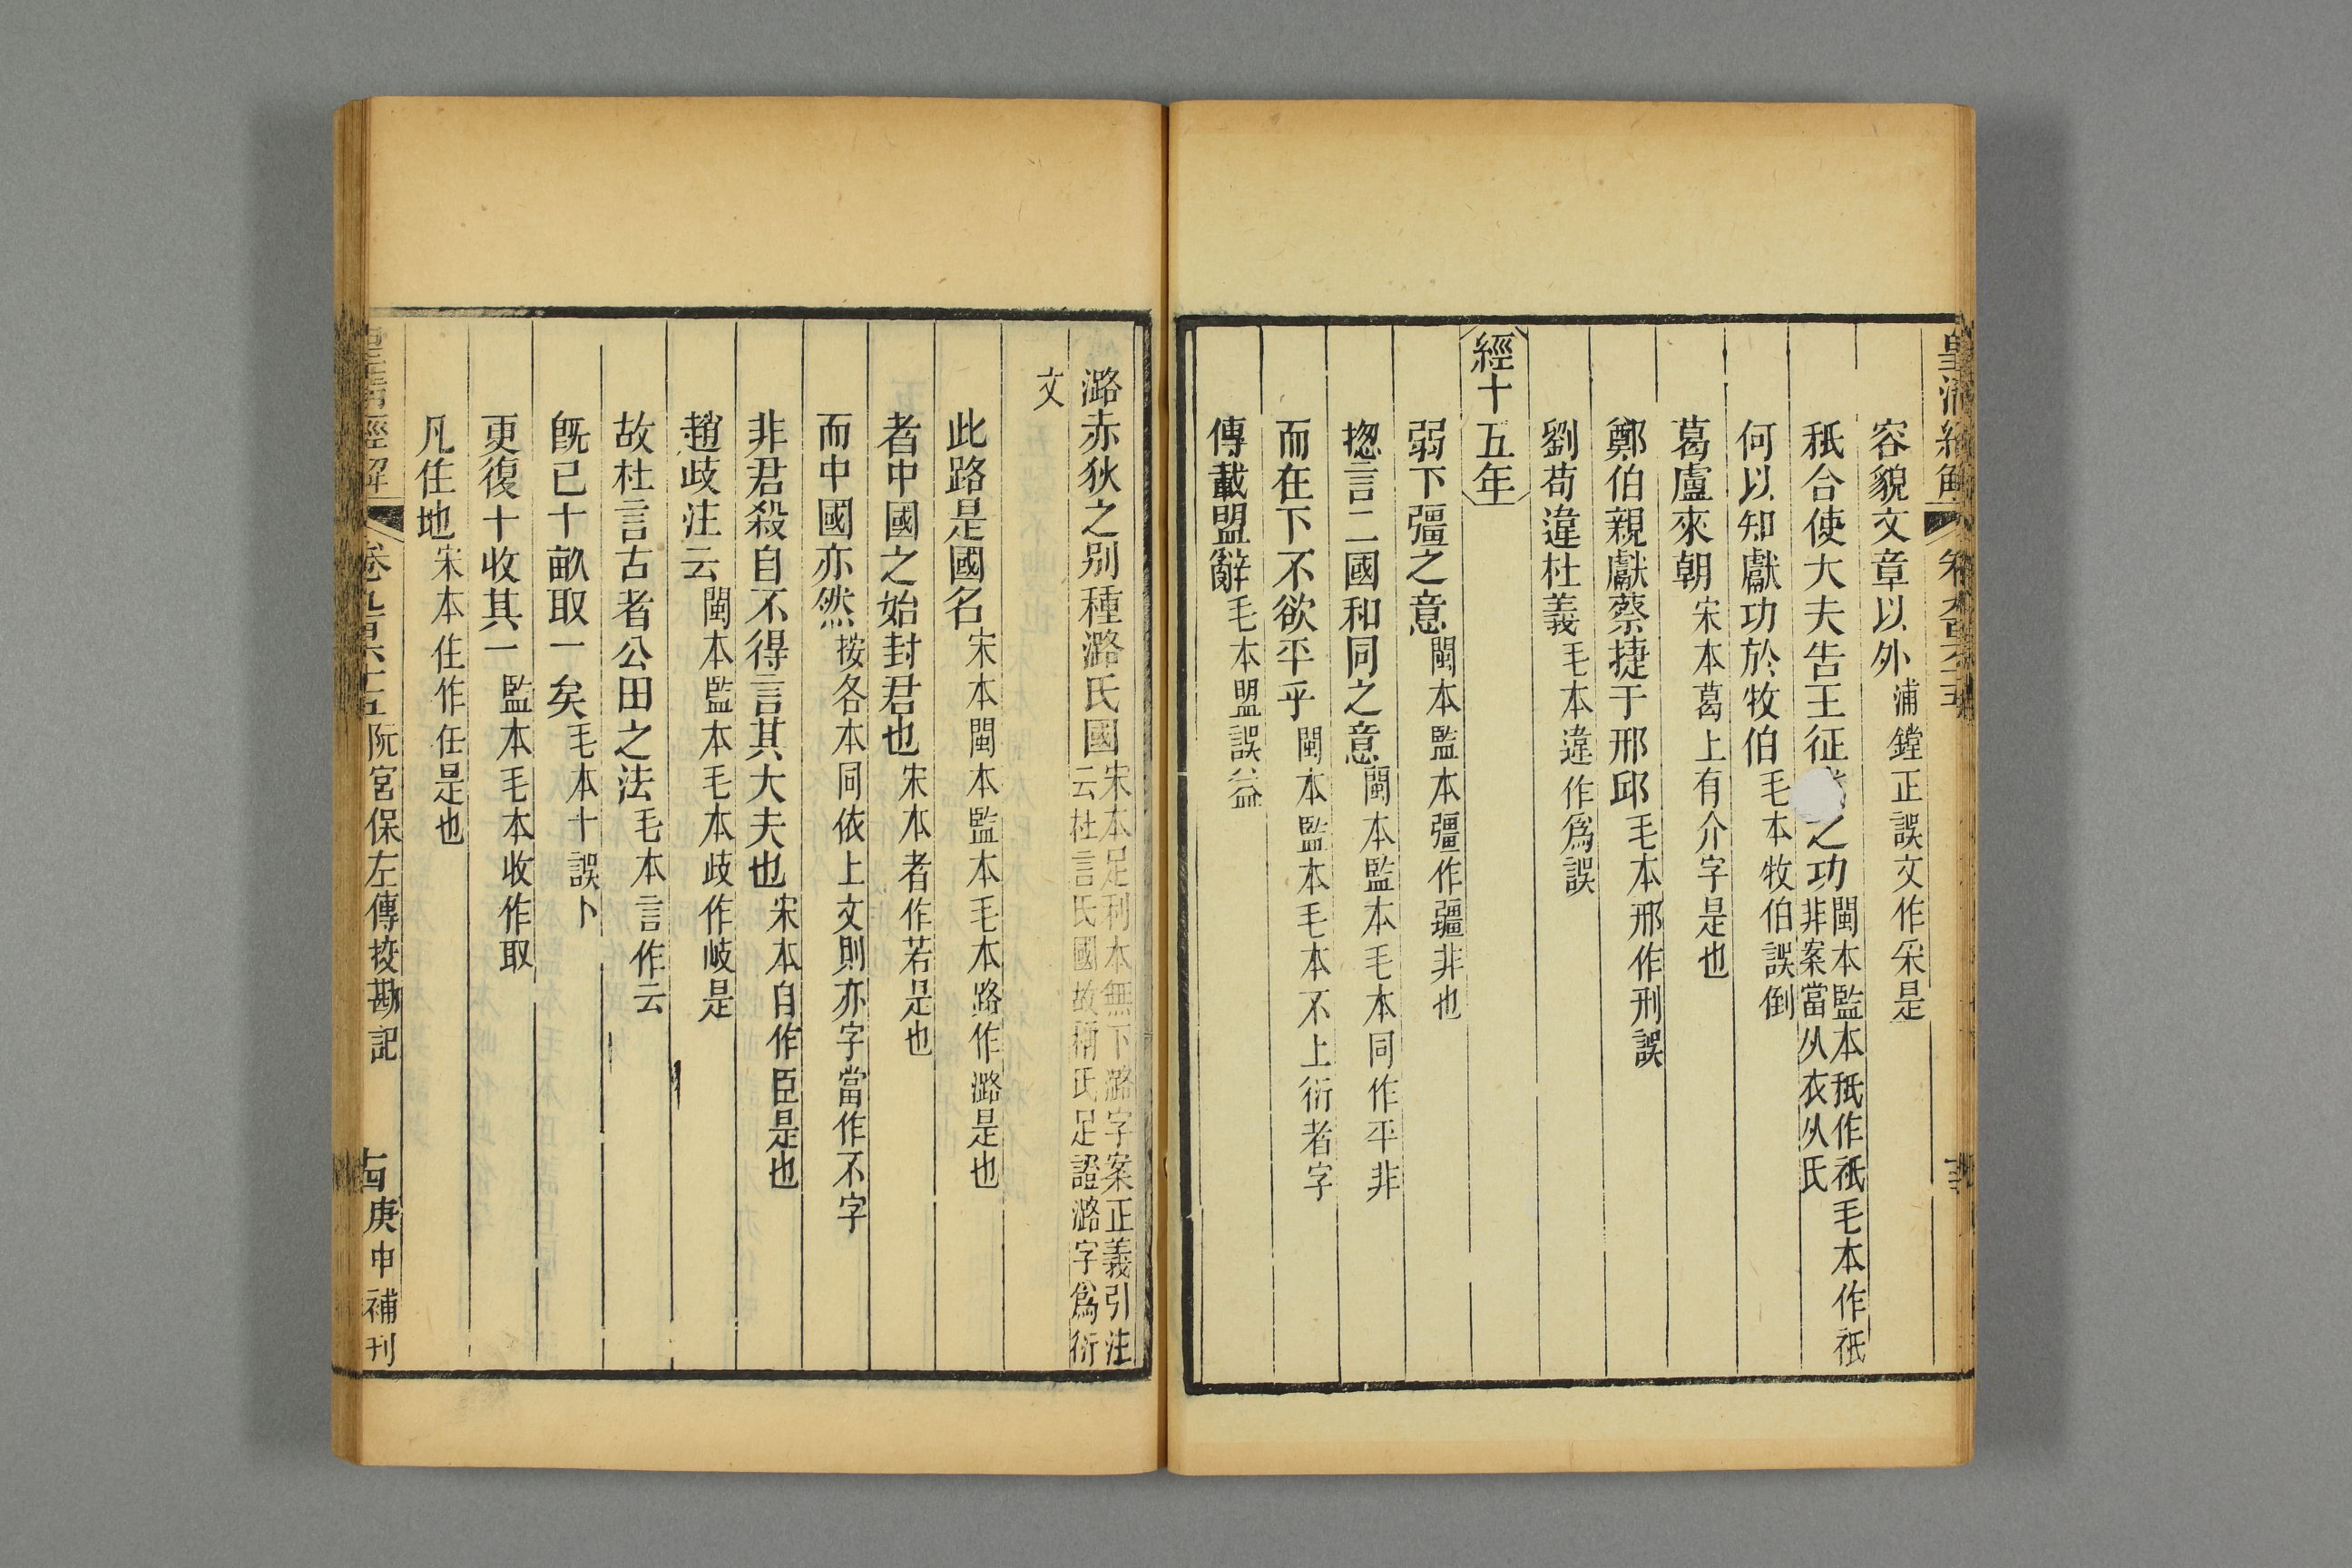 容貌文章以外浦鏜正誤文作采是
秖合使大夫告王征之功閩本監本秖作祇毛本作祇非案當从衣从氏
何以知獻功於牧伯毛本牧伯誤倒
葛盧來朝宋本葛上有介字是也
鄭伯親獻蔡捷于邢邱毛本邢作刑誤
劉苟違杜義毛本違作爲誤
經十五年
弱下彊之意閩本監本彊作疆非也
揔言二國和同之意閩本監本毛本同作平非
而在下不欲平乎閩本監本毛本不上衍者字
傳載盟辭毛本盟誤益
潞赤狄之別種潞氏國宋本足利本無下潞字案正義引注云杜言氏國故稱氏足證潞字爲衍
文
此路是國名宋本閩本監本毛本路作潞是也
者中國之始封君也宋本者作若是也
而中國亦然按各本同依上文則亦字當作不字
非君殺自不得言其大夫也宋本自作臣是也
趙歧注云閩本監本毛本歧作岐是
故杜言古者公田之法毛本言作云
旣已十畝取一矣毛本十誤卜
更復十收其一監本毛本收作取
凡住地宋本住作任是也
皇清經解 卷九百六十五 阮宮保左傳挍勘記 古 庚申補刊